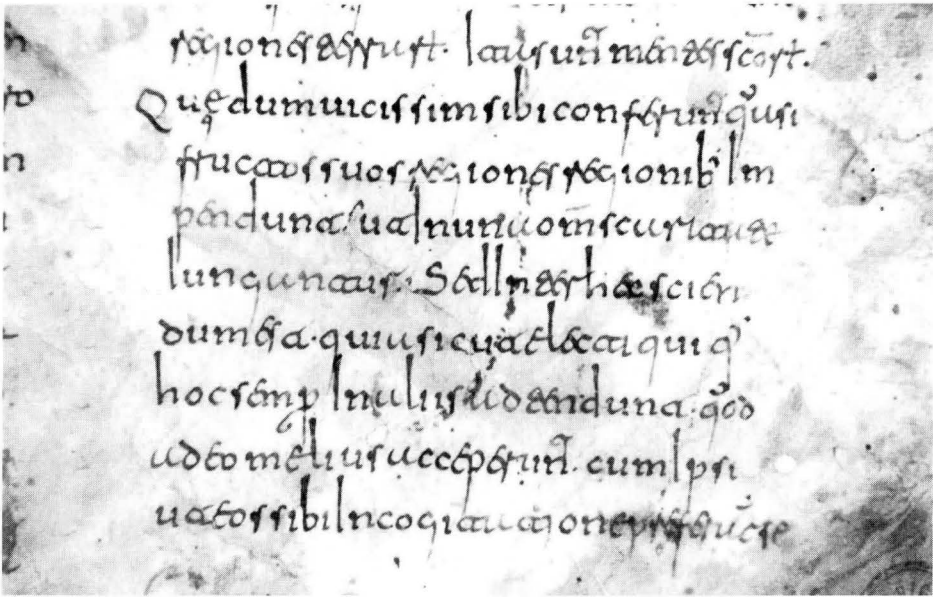 regiones terraru· Ita sunt mentes scōru·
Quę dum uicissim sibi conferunt q̄usi
fructos suos regiones regionib' In
pendunt· ut alnunt om̄s curitate
Iunguntur· Sed Inter hec scien
dum est· quiu sicut electi qui q'
hoc semp̱ In uliis utdendunt· q̄od
udeo melius ucceperunt· cum Ipsi
ut eos sibi In cogitutione preferunt se